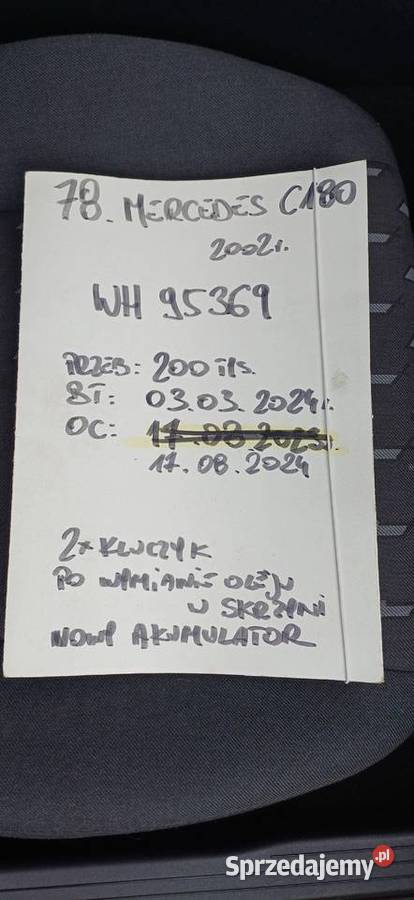 78. MERCEDES C180
2002r.
WH 95369
PRZEB: 200 TYS.
BT: 03.03.2024r.
OC: 17.08.2023r.
17.08.2024
2x KLUCZYK
PO WYMIANIE OLEJU
W SKRZYNI
NOWY AKUMULATOR
Sprzedajemy.pl